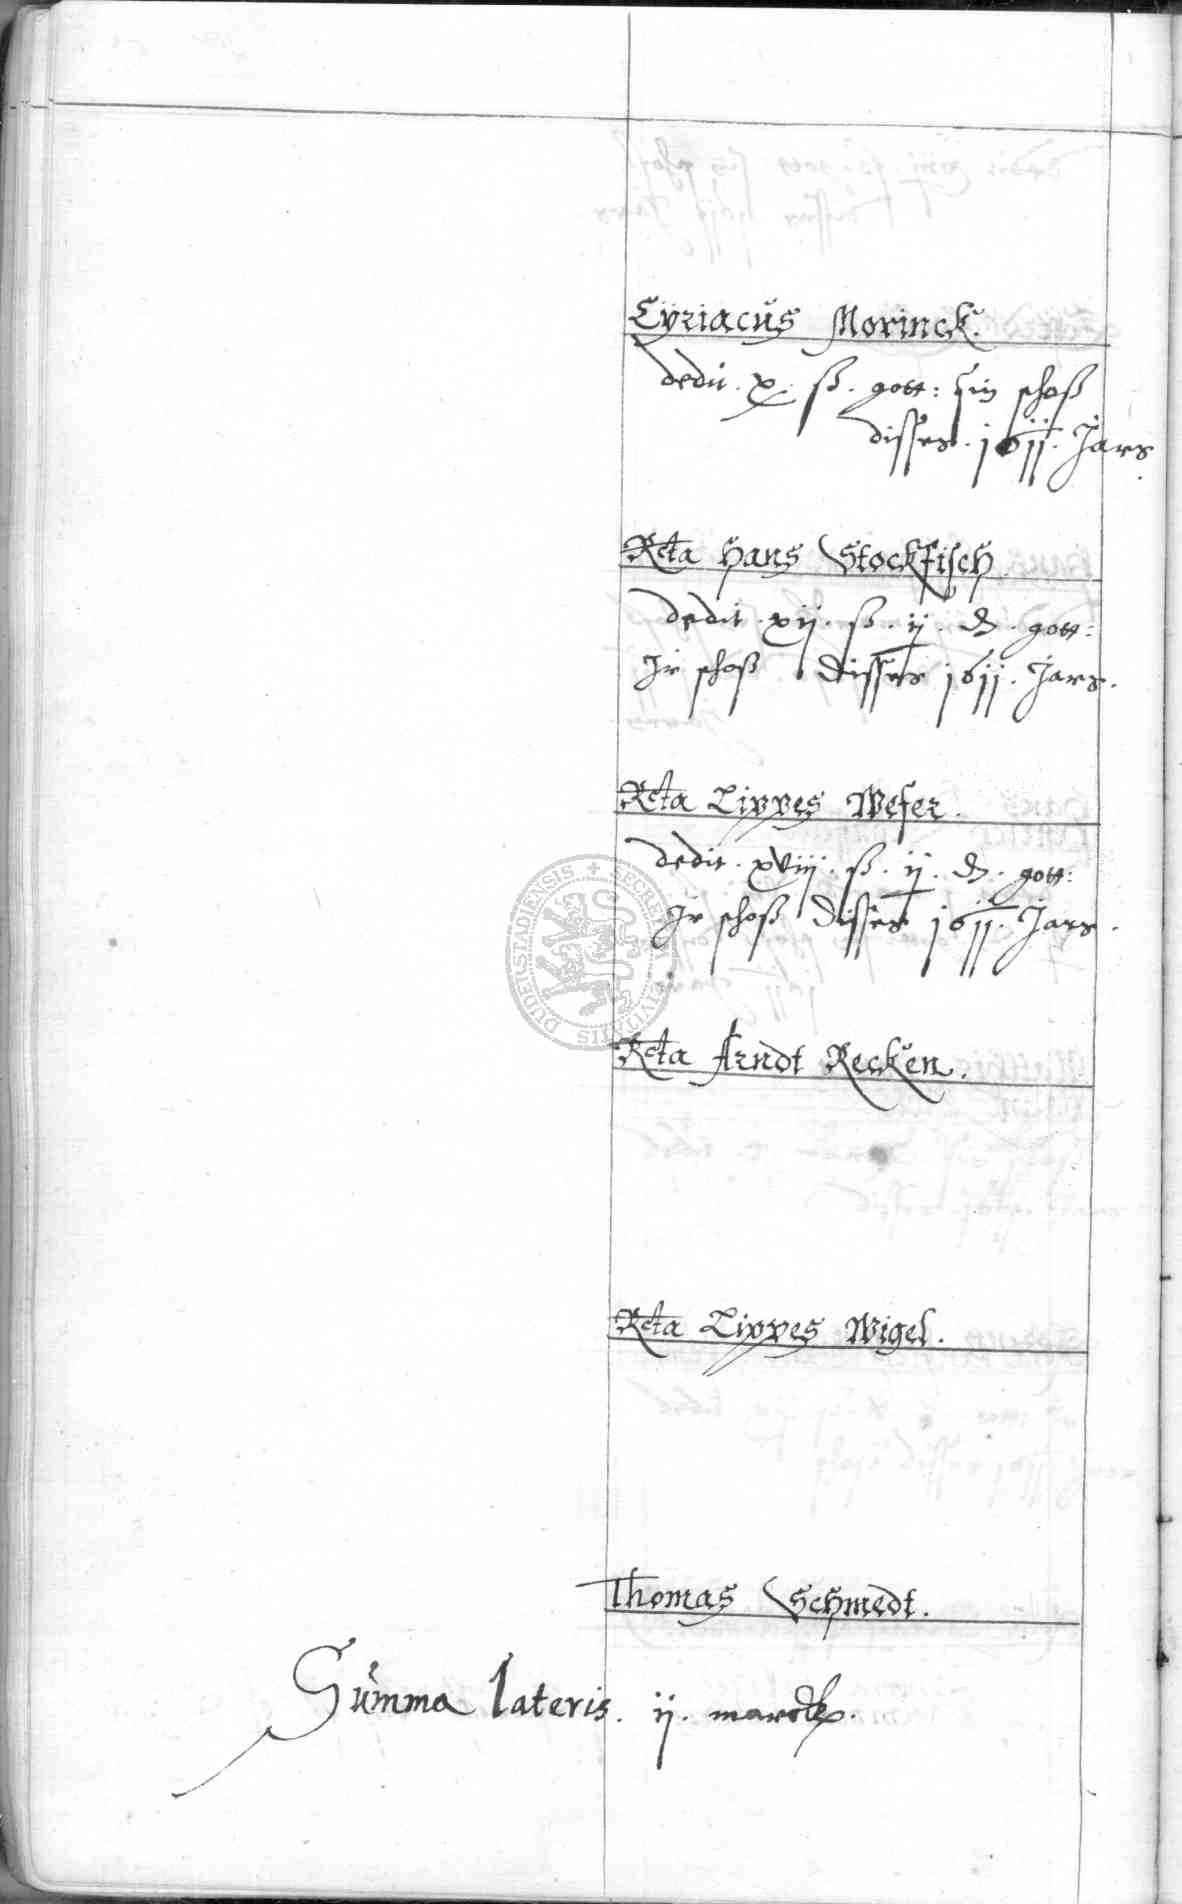 Cÿriacus Morinck.
dedit . x. ß . gott: sin schoß
disses . 1611. Jars.
Rcta Hans Stockfisch
dedit . xij . ß . ij . ₰ . gott:
Jr schoß disses 1611. Jars.
Rcta Lippes Weser.
dedit . xviij . ß . ij . ₰ . gott:
Jr schoß disses 1611. Jars.
DUDERSTADIENSIS + SECRETUM CIVITATIS
Rcta Arndt Recken.
Rcta Lippes Wigel.
Thomas Schmedt.
Summa lateris . ij . marck.